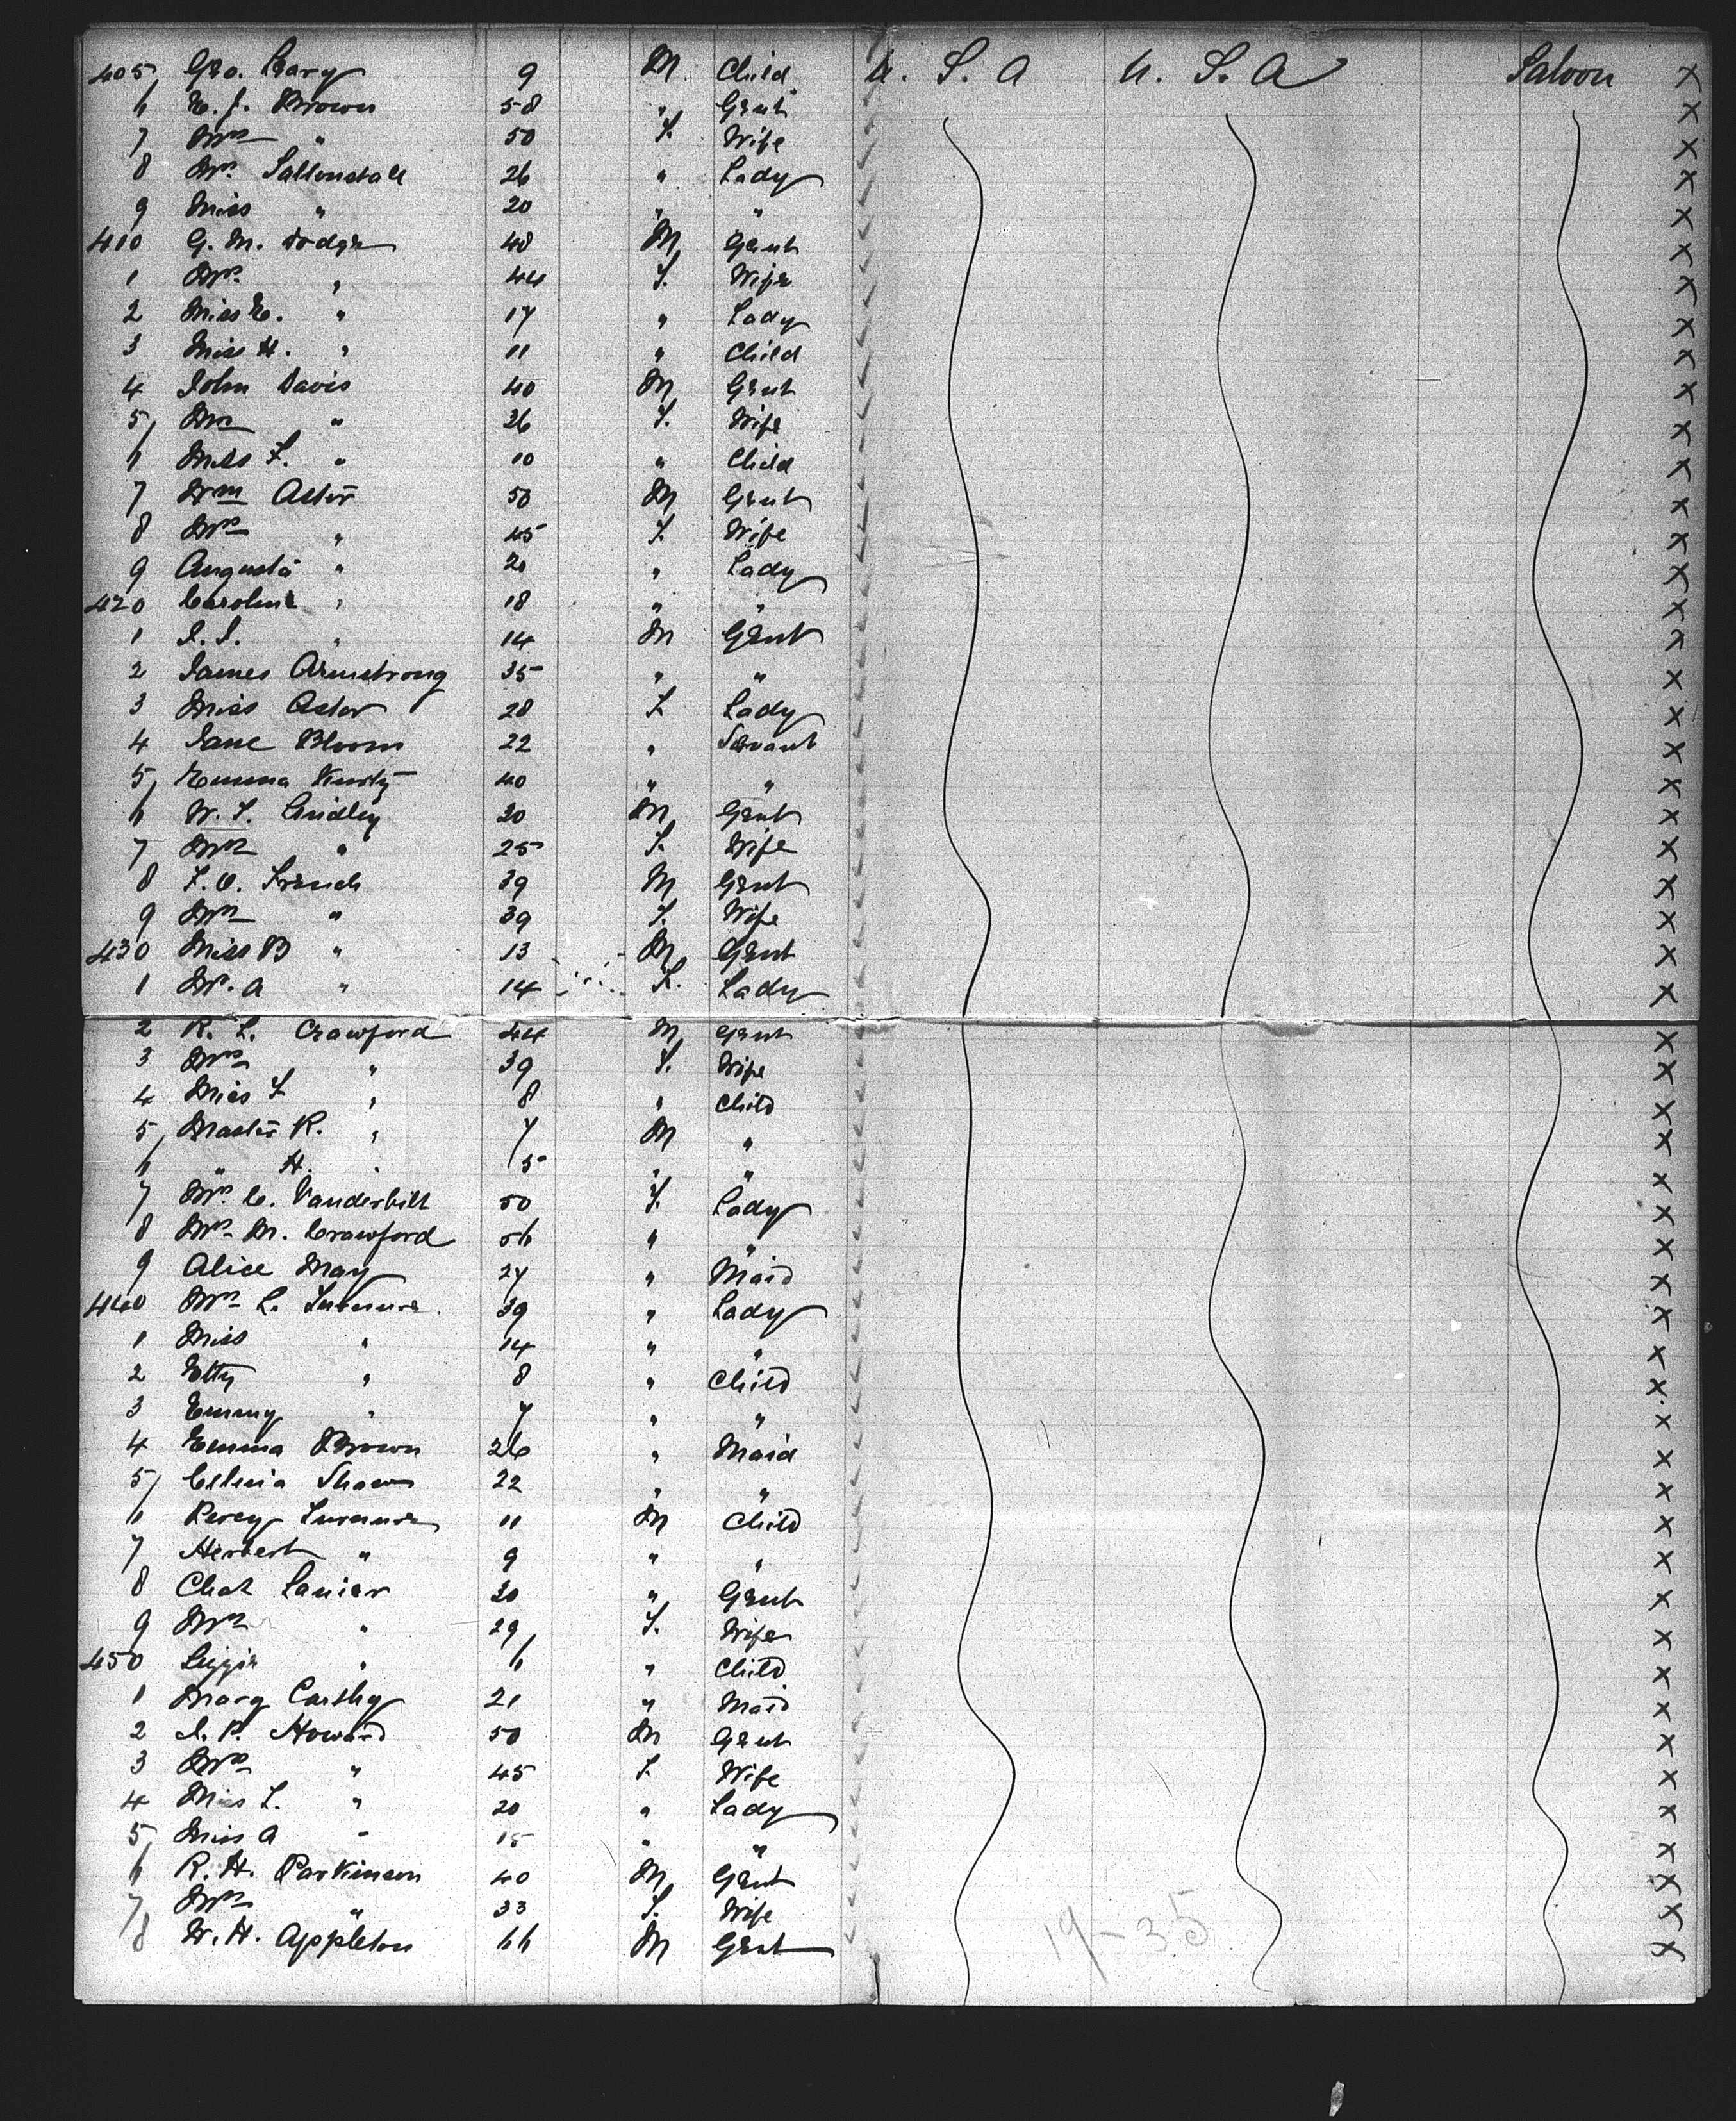 405 Geo. Leary 9 M Child U. S. A U. S. A Saloon X
6 E. J. Brown 58 " Gent X
7 Mrs " 50 F. Wife X
8 Mrs. Saltonstall 26 " Lady X
9 Miss " 20 " " X
410 G. M. Dodge 48 M Gent X
1 Mrs. " 44 F. Wife X
2 Miss E. " 17 " Lady X
3 Miss H. " 11 " Child X
4 John Davis 40 M Gent X
5 Mrs " 36 F. Wife X
6 Miss F. " 10 " Child X
7 Wm Astor 50 M Gent X
8 Mrs " 45 F. Wife X
9 Augusta " 20 " Lady X
420 Caroline " 18 " " X
1 J. J. " 14 M Gent X
2 James Armstrong 35 " " X
3 Miss Astor 28 F. Lady X
4 Jane Bloom 22 " Servant X
5 Emma 40 " " X
6 W. F. 30 M Gent X
7 Mrs " 25 F. Wife X
8 F. O. French 39 M Gent X
9 Mrs " 39 F. Wife X
430 Miss B " 13 M Gent X
1 Mr. A " 14 F. Lady X
2 R. L. Crawford 44 M Gent X
3 Mrs " 39 F. Wife X
4 Miss F " 8 " Child X
5 Master R. " 7 M " X
6 " H. " 5 " " X
7 Mrs. C. Vanderbilt 50 F. Lady X
8 Mrs M. Crawford 56 " " X
9 Alice May 27 " Maid X
440 Mrs L. Turnure 39 " Lady X
1 Miss " 14 " " X
2 Etty " 8 " Child X
3 Emmy " 7 " " X
4 Emma Brown 26 " Maid X
5 Celenia Shaw 22 " " X
6 Percy Turnure 11 M Child X
7 Herbert " 9 " " X
8 Chas Lanier 30 " Gent X
9 Mrs " 29 F. Wife X
450 Lizzie " 6 " Child X
1 Mary Carthy 21 " Maid X
2 J. P. Howard 50 M Gent X
3 Mrs " 45 F. Wife X
4 Miss L. " 20 " Lady X
5 Miss A " 15 " " X
6 R. H. Parkinson 40 M Gent X
7 Mrs " 33 F. Wife X
8 W. H. Appleton 66 M Gent X
19-35